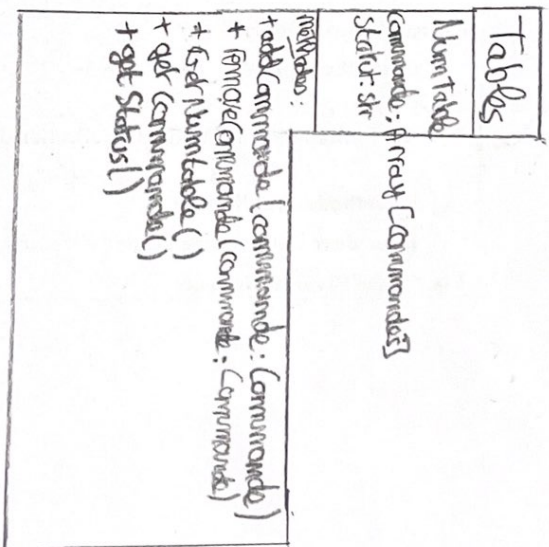 Tables
NumTable
commande: Array [Commandes]
statut: str
methodes:
+ addCommande (commande: Commande)
+ removeCommande (commande: Commande)
+ GetNumtable()
+ get Commande()
+ get Status()